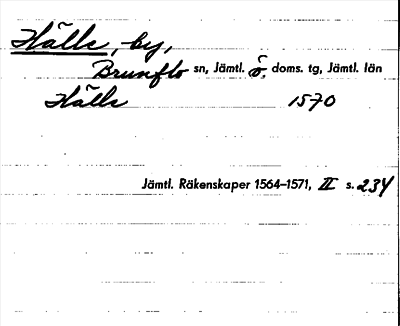 Hälle, by,
Brunflo sn, Jämtl. ö. doms. tg, Jämtl. län
Hälle 1570
Jämtl. Räkenskaper 1564–1571, II s. 234